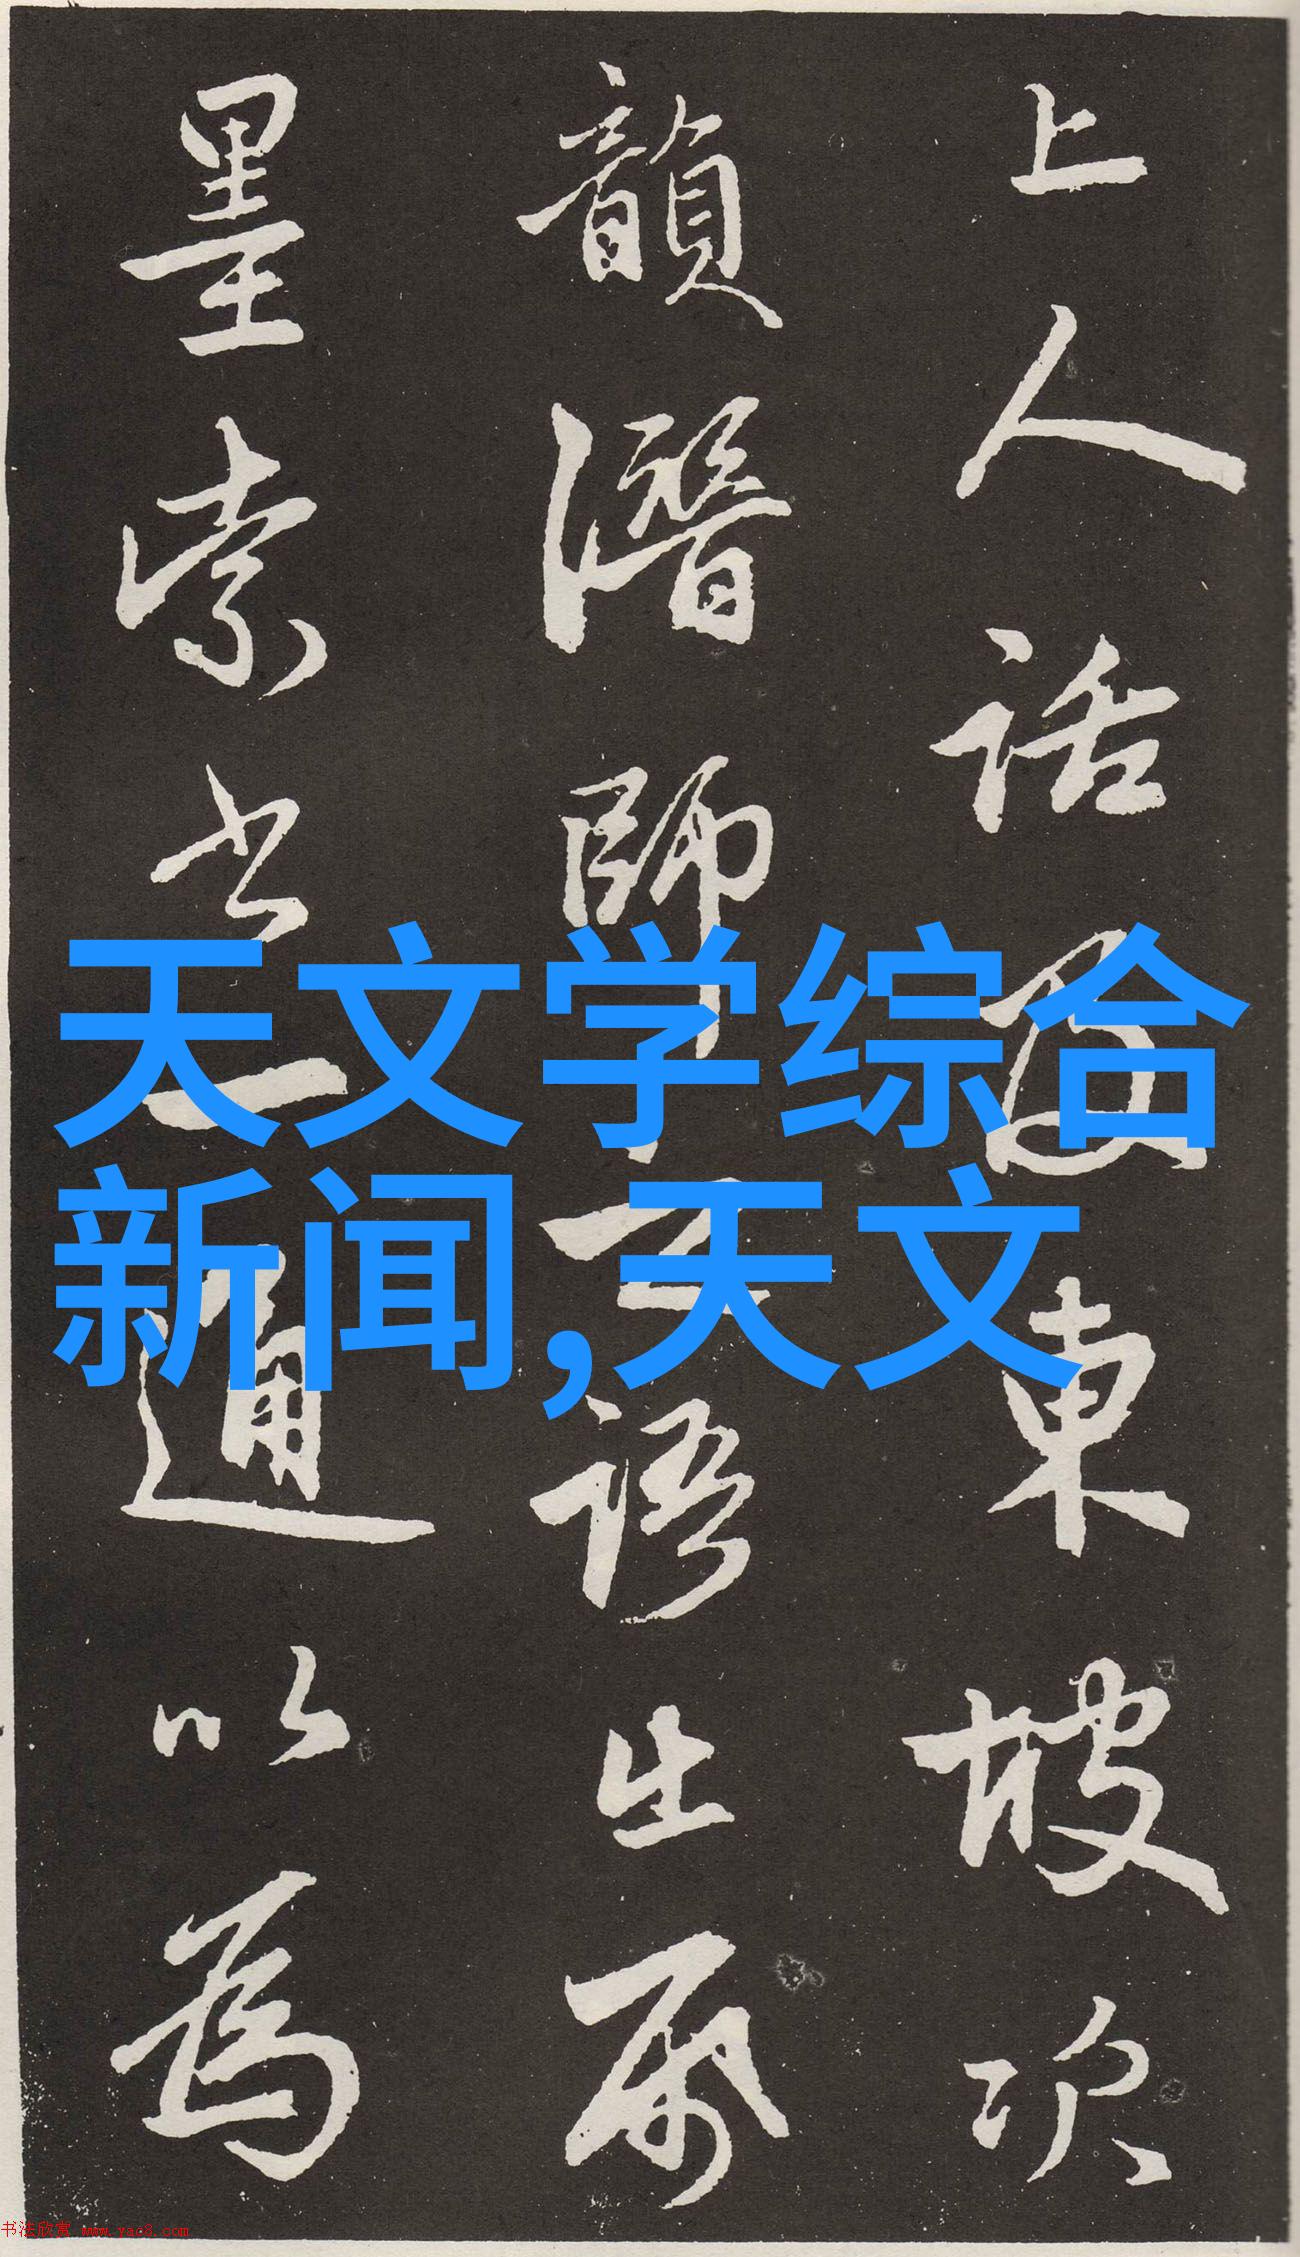 上人話及東坡次
韻潛師
語生
墨索書一通以爲
天文学综合
新闻,天文
书法欣赏 www.yac8.com